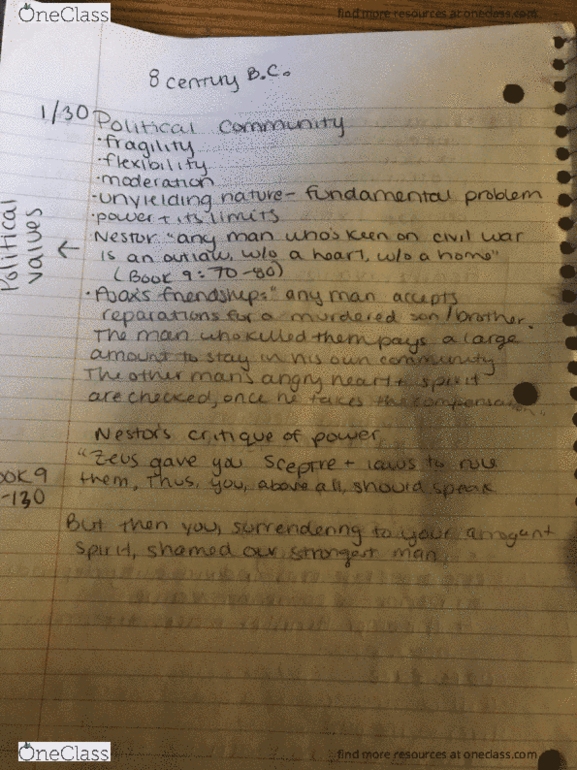 OneClass
find more resources at oneclass.com
8 century B.C.
1/30 Political Community
·fragility
·flexibility
·moderation
·unyielding nature- fundamental problem
·power + its limits
Political values ←
Nestor: "any man who's keen on civil war
is an outlaw, w/o a heart, w/o a home"
(Book 9:70-80)
friendship:" any man accepts
reparations for a murdered son/brother.
The man who killed them pays a large
amount to stay in his own community
The other man's angry heart + spirit
are checked, once he takes the compensation"
Nestor's critique of power
"Zeus gave you sceptre + laws to rule
ook 9
them, Thus, you, above all, should speak
-130
But then you, surrendering to your arrogant
spirit, shamed our strongest man,
OneClass
find more resources at oneclass.com